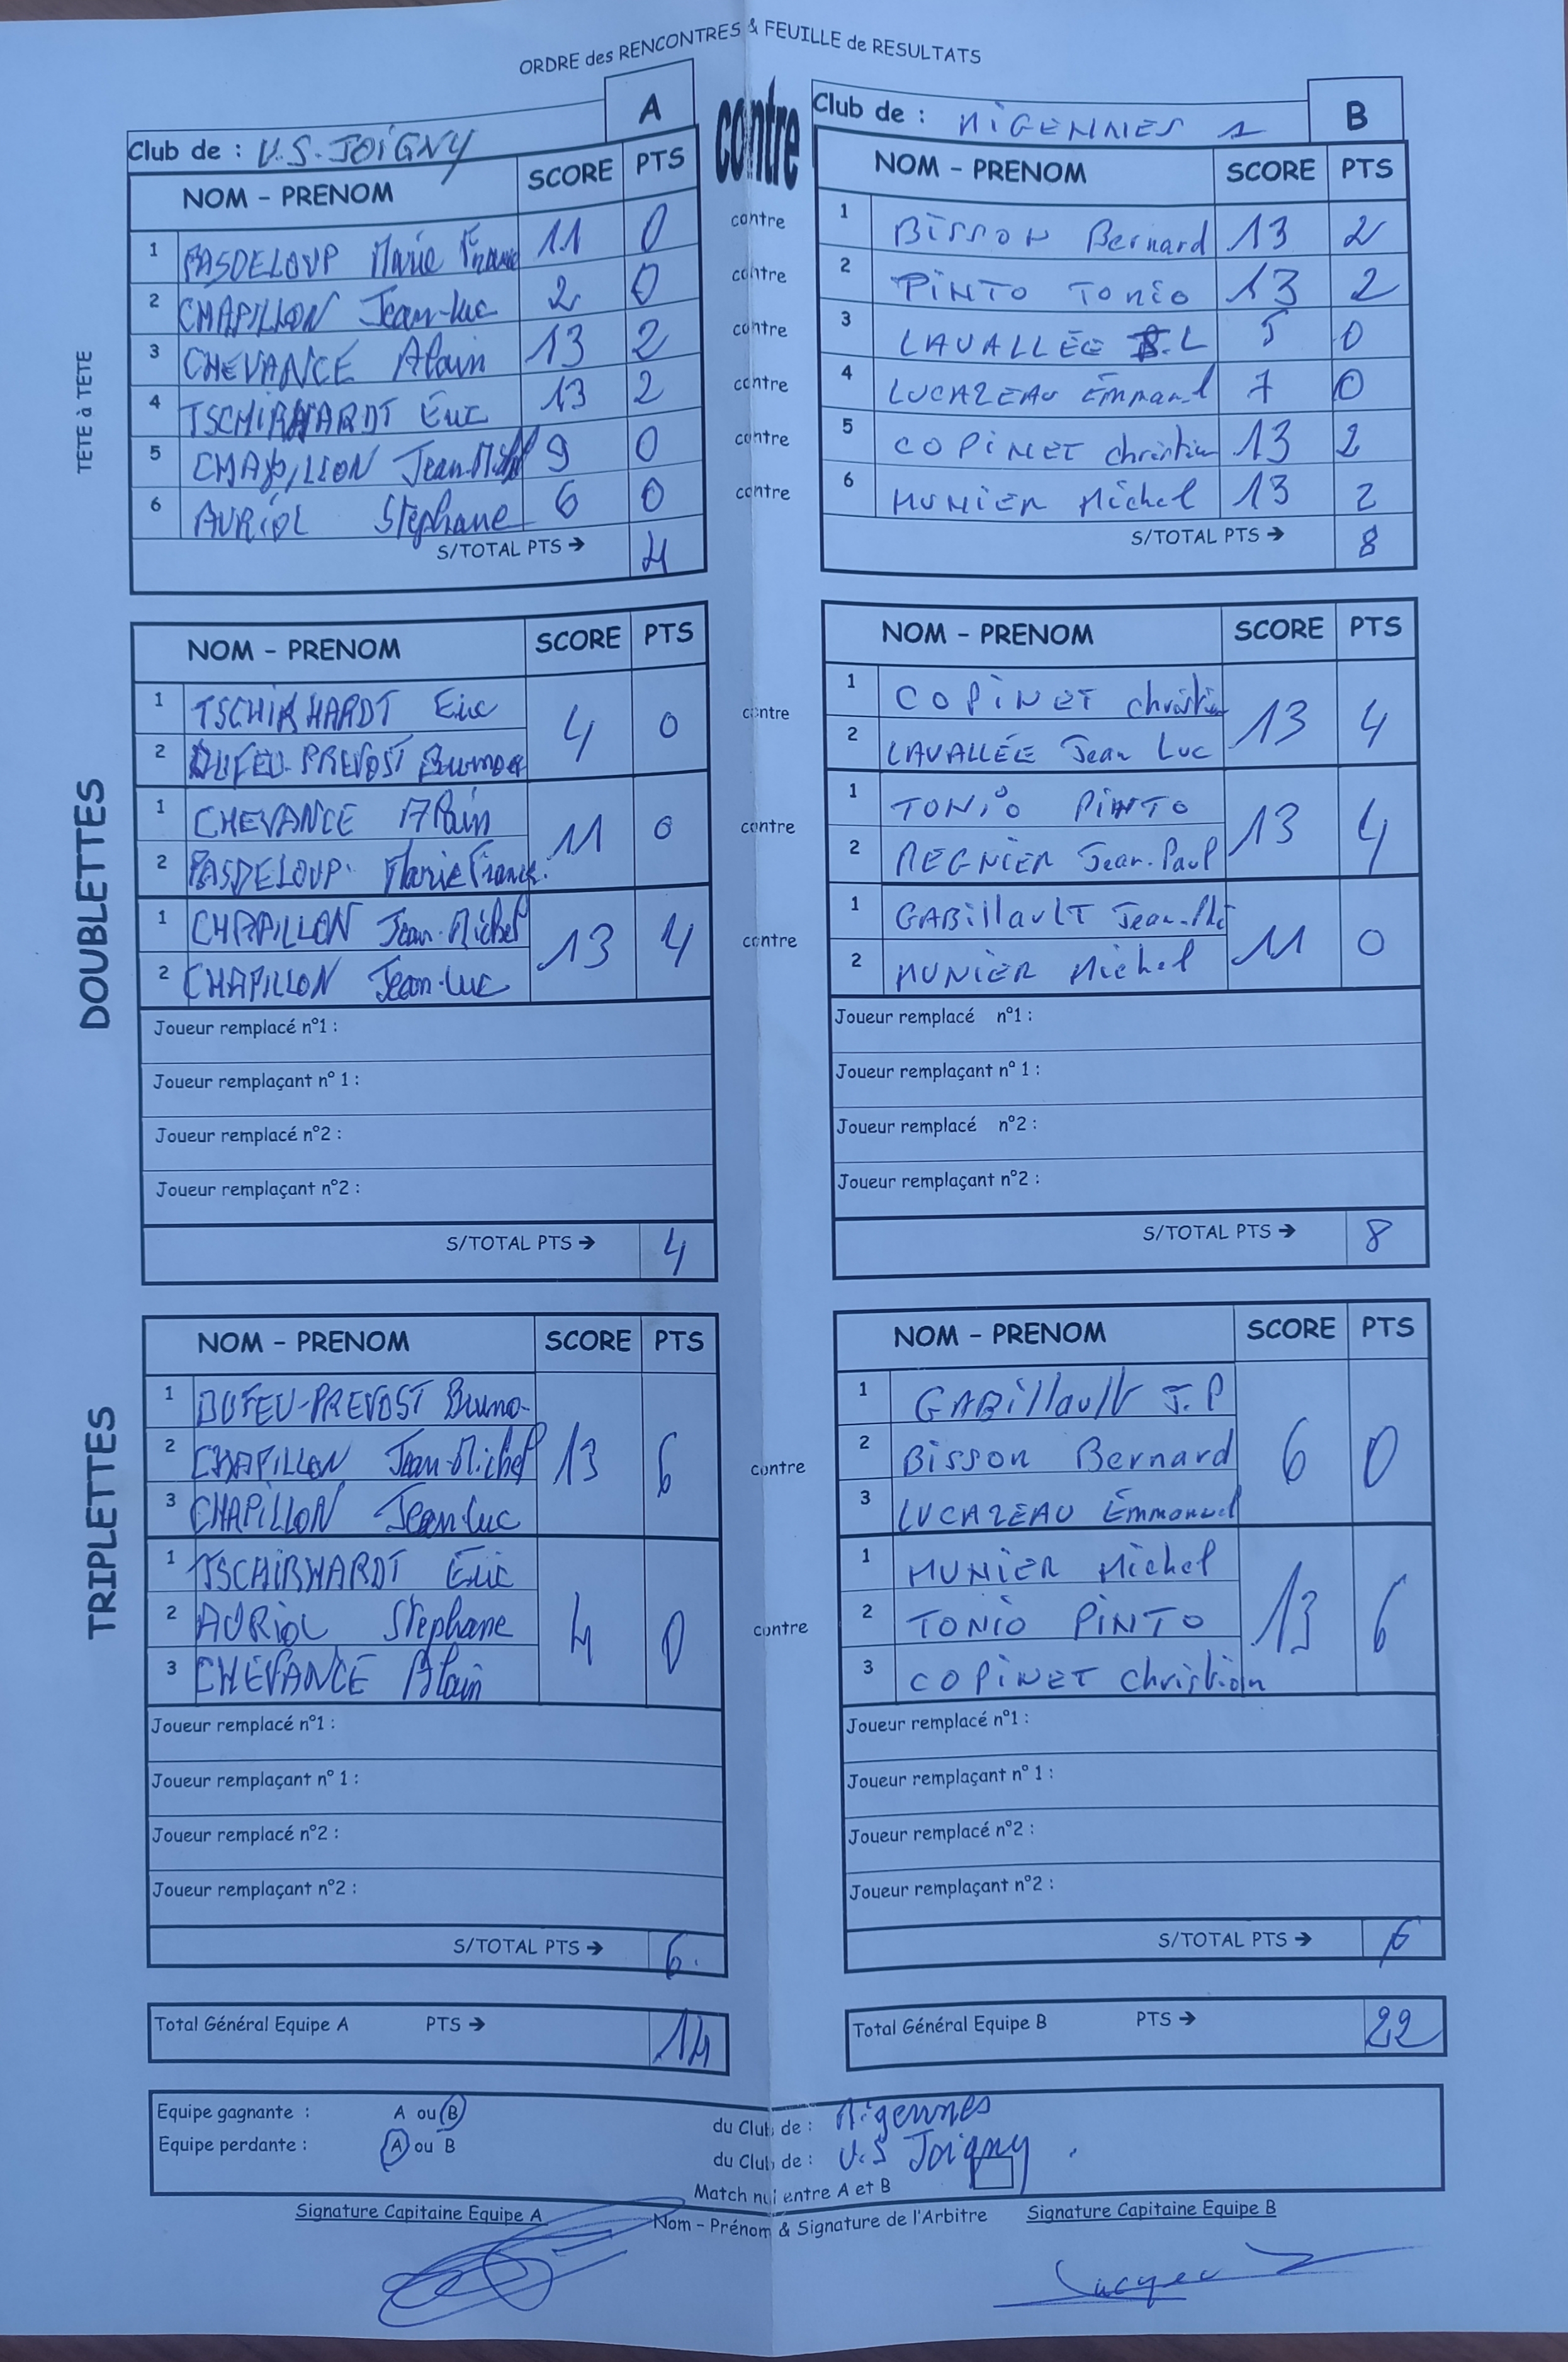 ORDRE des RENCONTRES & FEUILLE de RESULTATS
Club de : U.S. JOIGNY A contre Club de : MIGENNES 1 B
NOM - PRENOM SCORE PTS NOM - PRENOM SCORE PTS
TETE à TETE
1 PASDELOUP Marie France 11 0 contre 1 BISSON Bernard 13 2
2 CHAPILLON Jean-Luc 2 0 contre 2 PINTO Tonio 13 2
3 CHEVANCE Alain 13 2 contre 3 LAVALLÉE J.L 5 0
4 TSCHIRHARDT Éric 13 2 contre 4 LUCAZEAU Emmanuel 7 0
5 CHAPILLON Jean-Michel 9 0 contre 5 COPINET christian 13 2
6 AURIOL Stephane 6 0 contre 6 MUNIER Michel 13 2
S/TOTAL PTS → 4 S/TOTAL PTS → 8
DOUBLETTES
NOM - PRENOM SCORE PTS NOM - PRENOM SCORE PTS
1 TSCHIRHARDT Eric 4 0 contre 1 COPINET christian 13 4
2 DUFEU-PREVOST Bruno 2 LAVALLÉE Jean Luc
1 CHEVANCE Alain 11 0 contre 1 TONIO PINTO 13 4
2 PASDELOUP Marie France 2 REGNIER Jean-Paul
1 CHAPILLON Jean-Michel 13 4 contre 1 GABillaulT 11 0
2 CHAPILLON Jean-Luc 2 MUNIER Michel
Joueur remplacé n°1 : Joueur remplacé n°1 :
Joueur remplaçant n° 1 : Joueur remplaçant n° 1 :
Joueur remplacé n°2 : Joueur remplacé n°2 :
Joueur remplaçant n°2 : Joueur remplaçant n°2 :
S/TOTAL PTS → 4 S/TOTAL PTS → 8
TRIPLETTES
NOM - PRENOM SCORE PTS NOM - PRENOM SCORE PTS
1 DUFEU-PREVOST Bruno 13 6 contre 1 GABillault J.P 6 0
2 CHAPILLON Jean-Michel 2 BISSON Bernard
3 CHAPILLON Jean-Luc 3 LUCAZEAU Emmanuel
1 TSCHIRHARDT Éric 4 0 contre 1 MUNIER Michel 13 6
2 AURIOL Stephane 2 TONIO PINTO
3 CHEVANCE Alain 3 COPINET Christian
Joueur remplacé n°1 : Joueur remplacé n°1 :
Joueur remplaçant n° 1 : Joueur remplaçant n° 1 :
Joueur remplacé n°2 : Joueur remplacé n°2 :
Joueur remplaçant n°2 : Joueur remplaçant n°2 :
S/TOTAL PTS → 6 S/TOTAL PTS → 6
Total Général Equipe A PTS → 14 Total Général Equipe B PTS → 22
Equipe gagnante : A ou B du Club de : Migennes
Equipe perdante : A ou B du Club de : U.S Joigny
Match nul entre A et B
Signature Capitaine Equipe A Nom - Prénom & Signature de l'Arbitre Signature Capitaine Equipe B